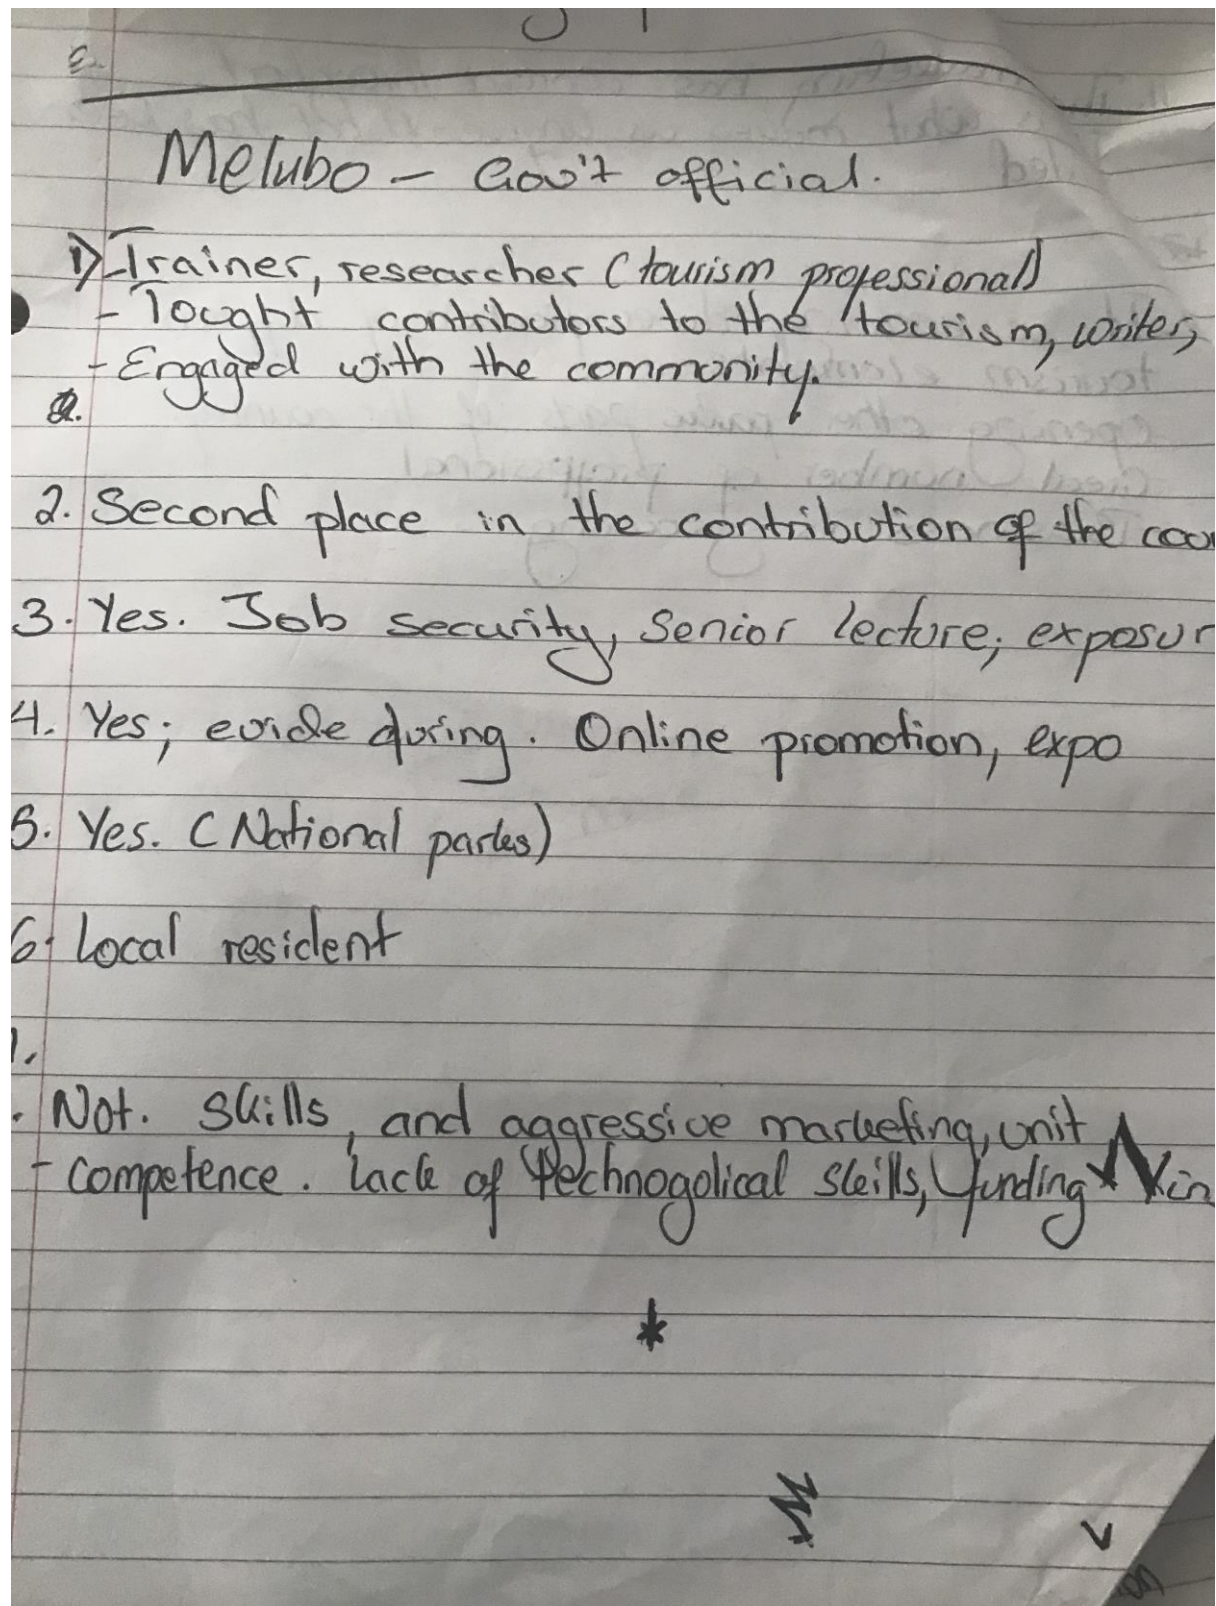 Melubo - Gov't official.
1) - Trainer, researcher (tourism professional)
- Tought contributors to the tourism, writer,
- Engaged with the commonity.
2.
2. Second place in the contribution of the cou
3. Yes. Job security, Senior lecture, exposur
4. Yes; evide during. Online promotion, expo
5. Yes. (National parks)
6. Local resident
. Not. skills, and aggressive marketing, unit
- competence. lack of technogolical skills, funding